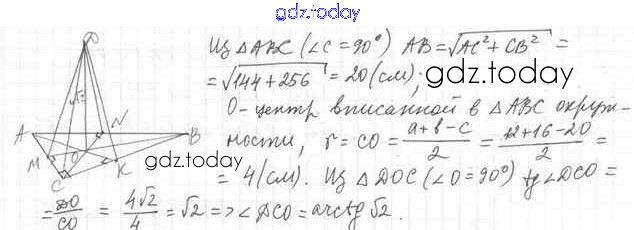 gdz.today
Из △ABC (∠C=90°) AB=√AC²+CB² =
= √144+256 = 20(см);
gdz.today
O-центр вписанной в △ABC окруж-
ности, r=CO= a+b-c/2 = 12+16-20/2 =
= 4(см). Из △DOC (∠O=90°) tg∠DCO =
= DO/CO = 4√2/4 = √2 => ∠DCO=arctg√2.
D
N
A
B
M
O
C
K
gdz.today